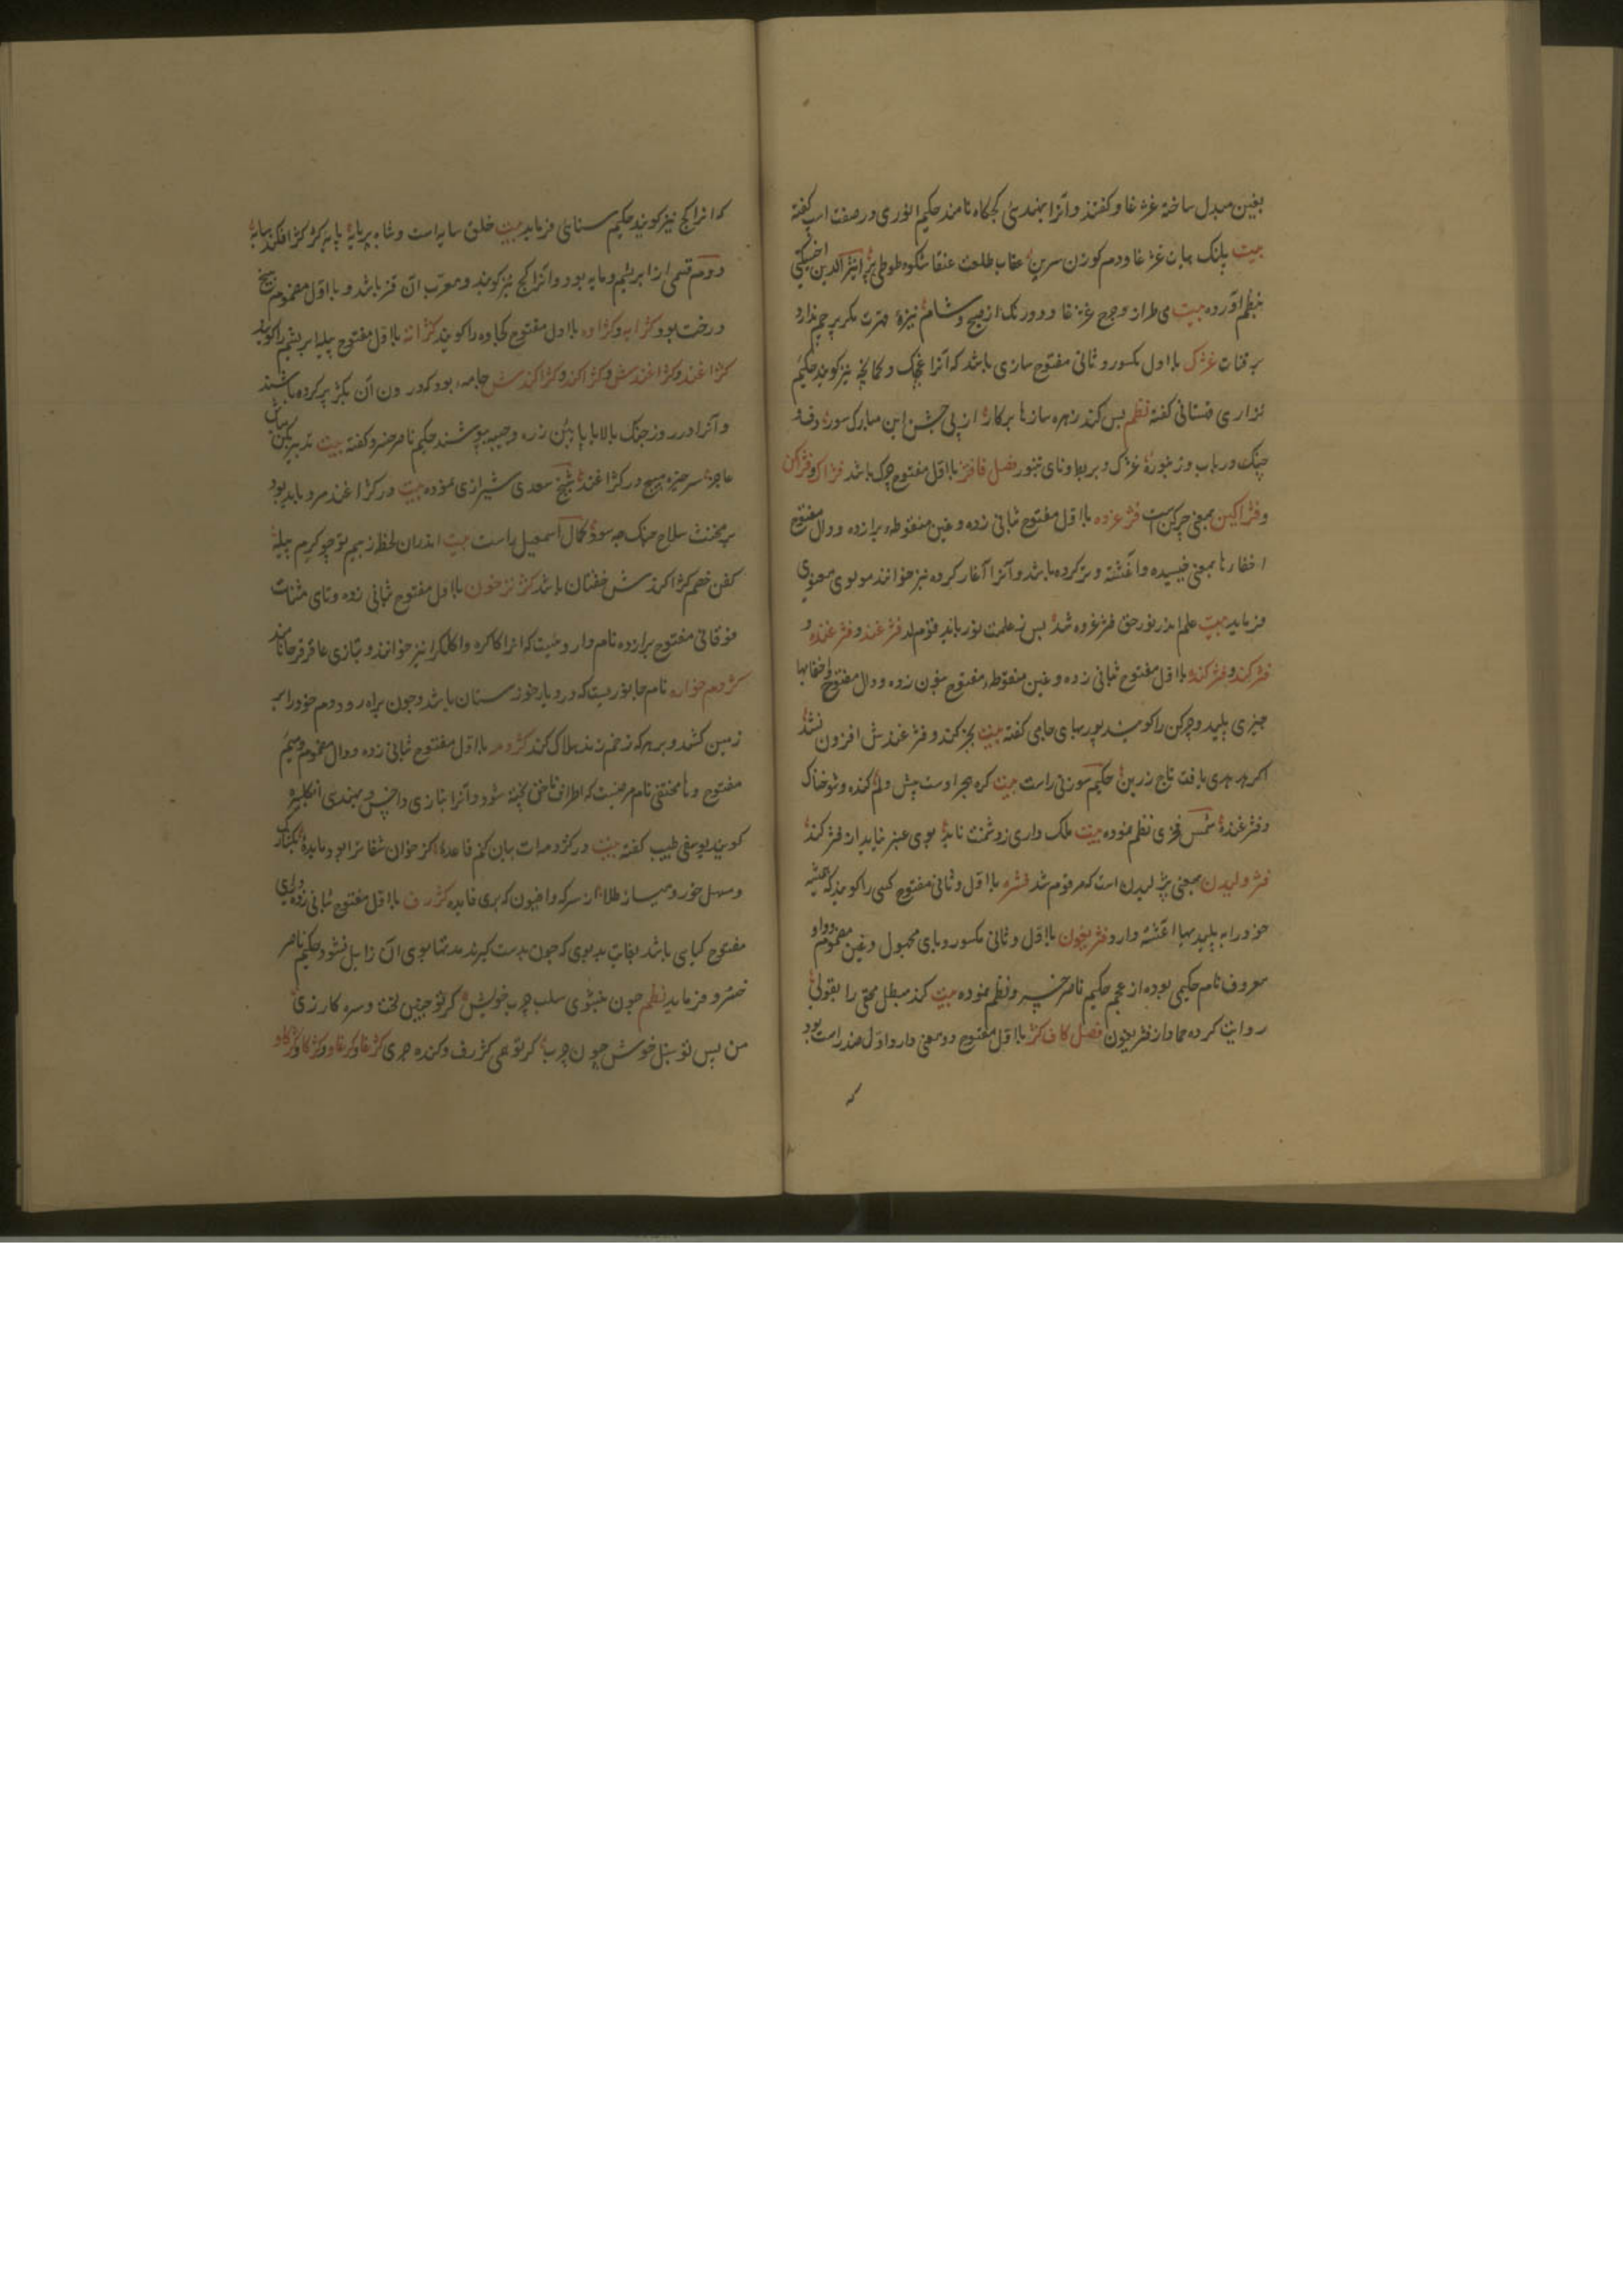 بغین مبدل ساخته غژغاو گفتند و آنرا بهندی کجگاه نامند حکیم انوری در صفت اسپ گفته
بیت پلنک هیات غژغاو دم کوزن سرین عقاب طلعت عنقا شکوه طوطی پر اثیر الدین اخسیکتی
بنظم آورده بیت می طرازد وجرح غژغا و دورنک از صبح و شام نیزه قدرت مکر پرچم ندارد
بر قنات غژک با اول مکسور و ثانی مفتوح سازی باشد که آنرا غجک و کمانچه نیز کویند حکیم
نزاری قهستانی گفته نظم بس کند زهره سازها بر کار از پی جشن این مبارک سور دف و
چنک و رباب و زنبوره غژک و بربط و نای تنبور فصل فا فژ با اول مفتوح چرک باشد فژاک و فژاکن
و فژاکین بمعنی چرکن است فژغرده با اول مفتوح بثانی زده و غین منقوطه برا زده و دال مفتوح
اخفا رها بمعنی خیسیده و آغشته و تر کرده باشد و آنرا آغار کرده نیز خوانند مولوی معنوی
فرماید بیت علم اندر نور حق فژغرده شد بس ز علمت نور یابد قوم لد فژغند و فژغنده و
فژکند و فژکنده با اول مفتوح بثانی زده و غین منقوطه مفتوح بنون زده و دال مفتوح و اخفا بها
چیزی پلید و چرکن را کویند پور بهای جامی گفته بیت بجز کند و فژغندش افزون نشد
اکر هدهدی یافت تاج زرین حکیم سوزنی راست بیت کره هجر اوست پیش ولم کنده و شوخناک
و فژغنده شمس فخری نظم نموده بیت ملک داری ز دشمنت ناید بوی عنبر نیاید از فژکند
فژولیدن بمعنی پژلیدن است که مرقوم شد فشره با اول و ثانی مفتوح کسی را کویند که همیشه
خود را به پلیدیها آغشته دارد فژیغون با اول و ثانی مکسور و یای مجهول و غین مضموم و واو
معروف نام حکیمی بوده از عجم حکیم ناصر خسرو نظم نموده بیت کند مبطل محق را بقولی
روایت کرده حماد از فژیغون فصل کاف کژ با اول مفتوح دو معنی دارد اول ضد راست بود
که
که انرا کج نیز کویند حکیم سنائی فرماید بیت خلق سایه است و شاه بر پایه پایه کژ کژ افکند سایه
دوم قسمی از ابریشم فرومایه بود و آنرا کج نیز کویند و معرب آن قز باشد و با اول مضموم بیخ
درخت بود کژابه و کژاوه با اول مفتوح کجاوه را کویند کژانه با اول مفتوح پیله ابریشم را کویند
کژاغند و کژاغندش و کژاکند و کژاکندش جامه بود که درون آن بکژ پر کرده باشند
و آنرا در روز جنک بالا یا پائین زره و جیبه پوشند حکیم ناصر خسرو گفته بیت تدبیر بکن مباش
عاجز سر خیره مپیچ در کژاغند شیخ سعدی شیرازی نموده بیت در کژاغند مرد باید بود
بر مخنث سلاح جنک چه سود کمال اسمعیل راست بیت اندران لحظه ز بیم تو چو کرم پیله
کفن خصم کژاکندش خفتان باشد کژترخون با اول مفتوح بثانی زده و تای مثنات
فوقانی مفتوح برا زده نام داروئیست که انرا کاکره و اکلکرا نیز خوانند و بتازی عاقرقرحا نامند
کژدم خواره نام جانوریست که در دیار خوزستان باشد و چون براه رود دم خود را بر
زمین کشد و بر هر که زخم زند هلاک کند کژدمه با اول مفتوح بثانی زده و دال مضموم و میم
مفتوح و ها مختفی نام مرضیست که اطراف ناخن پخته شود و آنرا بتازی داخس و بهندی انکلبیره
کویند یوسفی طبیب گفته بیت در کژدمه ات بیان کنم قاعده اکر خوان شفا ترا بود مایده بکتارک
و مسهل خور و میساز طلا از سرکه و افیون که بری فایده کژرف با اول مفتوح بثانی زده و رای
مفتوح کیاهی باشد بغایت بدبوی که چون بدست کیرند مدتها بوی آن زایل نشود حکیم ناصر
خسرو فرماید نظم چون نشوی سلب چرب خویش کر تو چنین لخت و سره کازری
من پس تو سنبل خوش چون چرم کر تو همی کژرف و کنده چری کژغا و کژغاو و کژکا و کژکاو